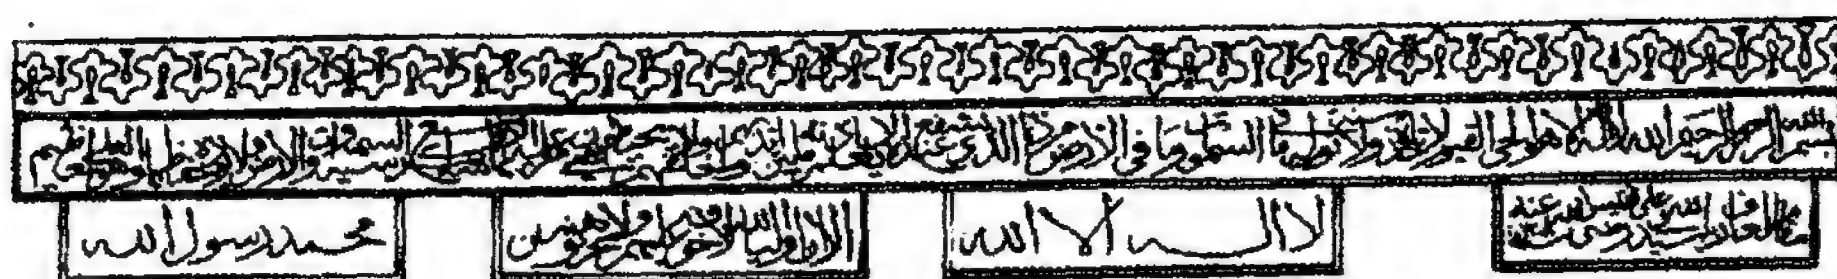 بسم الله الرحمن الرحيم الله لا إله إلا هو الحي القيوم لا تأخذه سنة ولا نوم له ما في السموات وما في الأرض من ذا الذي يشفع عنده إلا بإذنه يعلم ما بين أيديهم وما خلفهم ولا يحيطون بشيء من علمه إلا بما شاء وسع كرسيه السموات والأرض ولا يؤده حفظهما وهو العلي العظيم
لا اله الا الله
الا ان اولياء الله لا خوف عليهم ولا هم يحزنون
محمد رسول الله